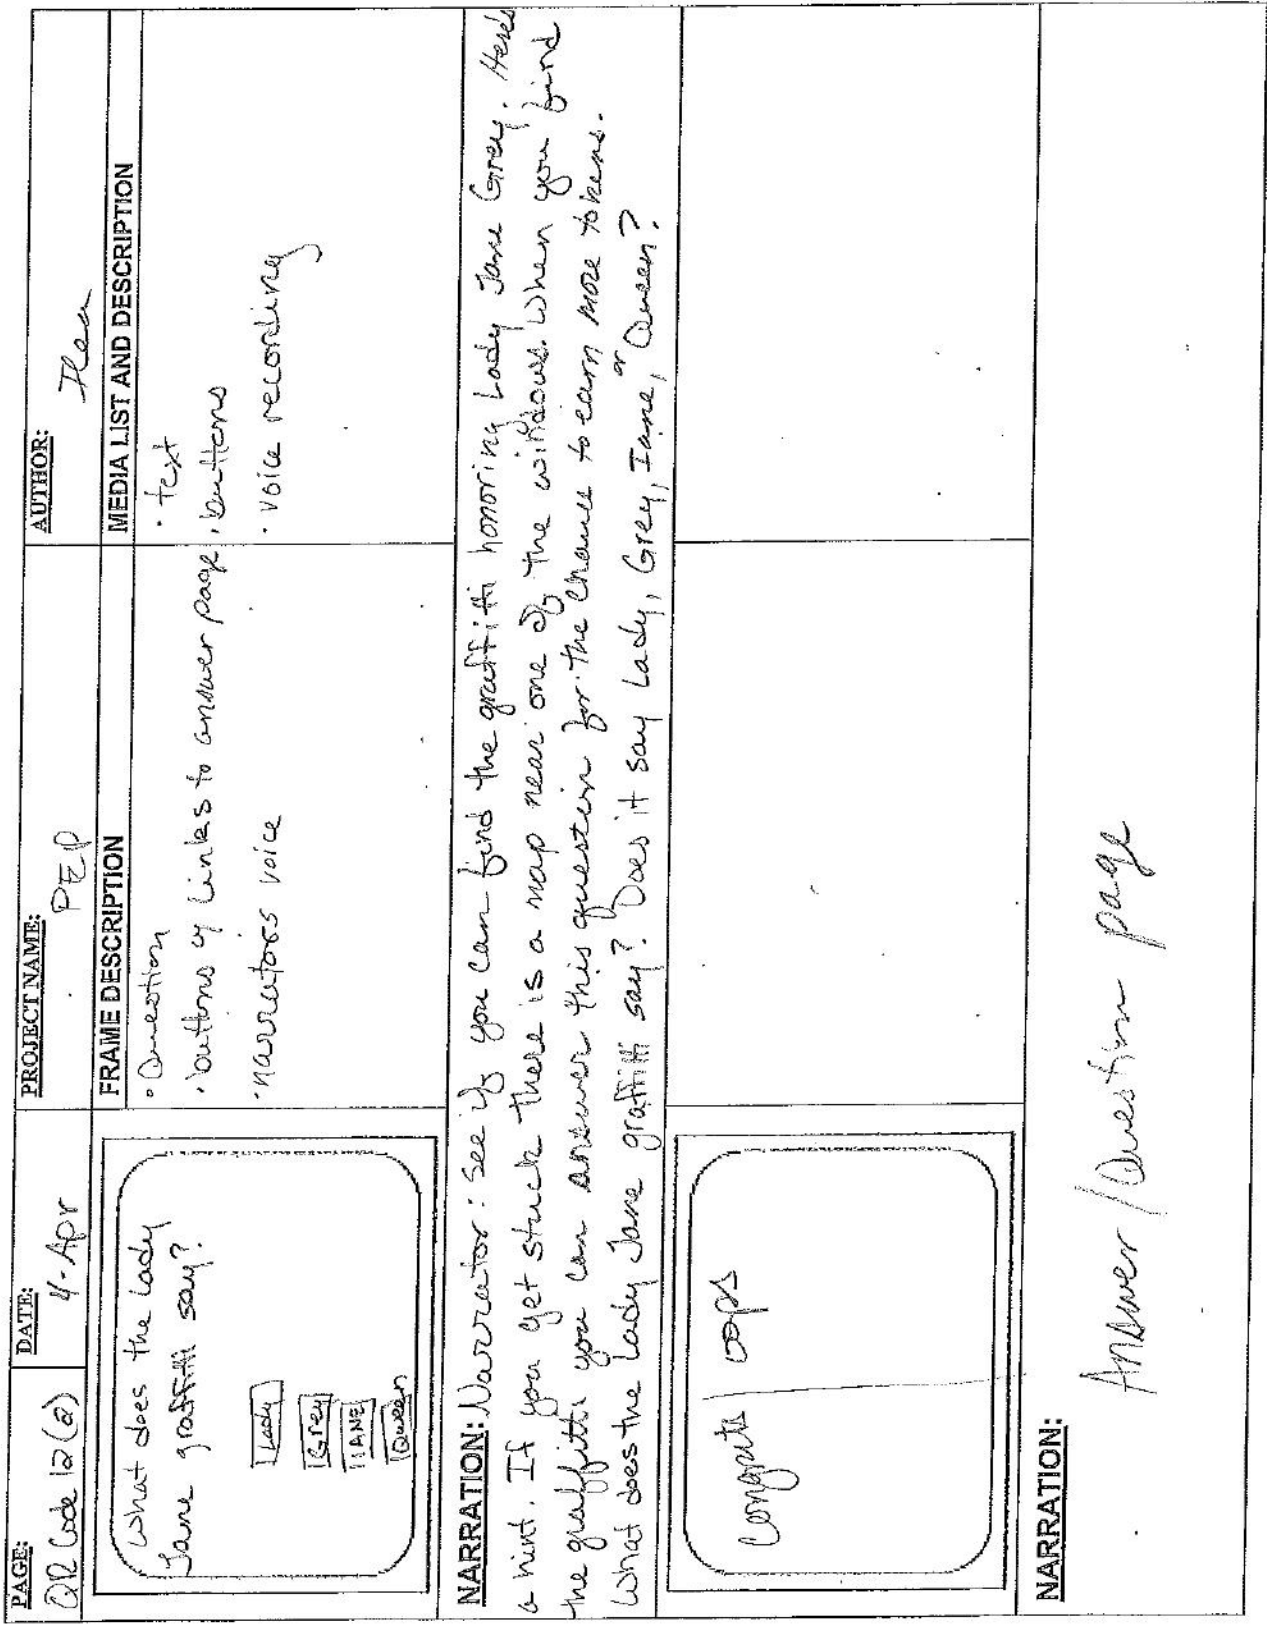 PAGE:
QR Code 12(a)
DATE:
4-Apr
PROJECT NAME:
PEP
AUTHOR:
FRAME DESCRIPTION
MEDIA LIST AND DESCRIPTION
What does the Lady
Jane graffiti say?
Lady
Grey
IANE
Queen
• Question
• buttons w/ Links to answer page
• narrators voice
• text
• buttons
• voice recording
NARRATION: Narrator: See if you can find the graffiti honoring Lady Jane Grey. Here's
a hint. If you get stuck there is a map near one of the windows. When you find
the graffitti you can answer this question for the chance to earn more tokens.
What does the Lady Jane graffiti say? Does it say Lady, Grey, Iane, or Queen?
congrats / oops
NARRATION:
Answer/Question page